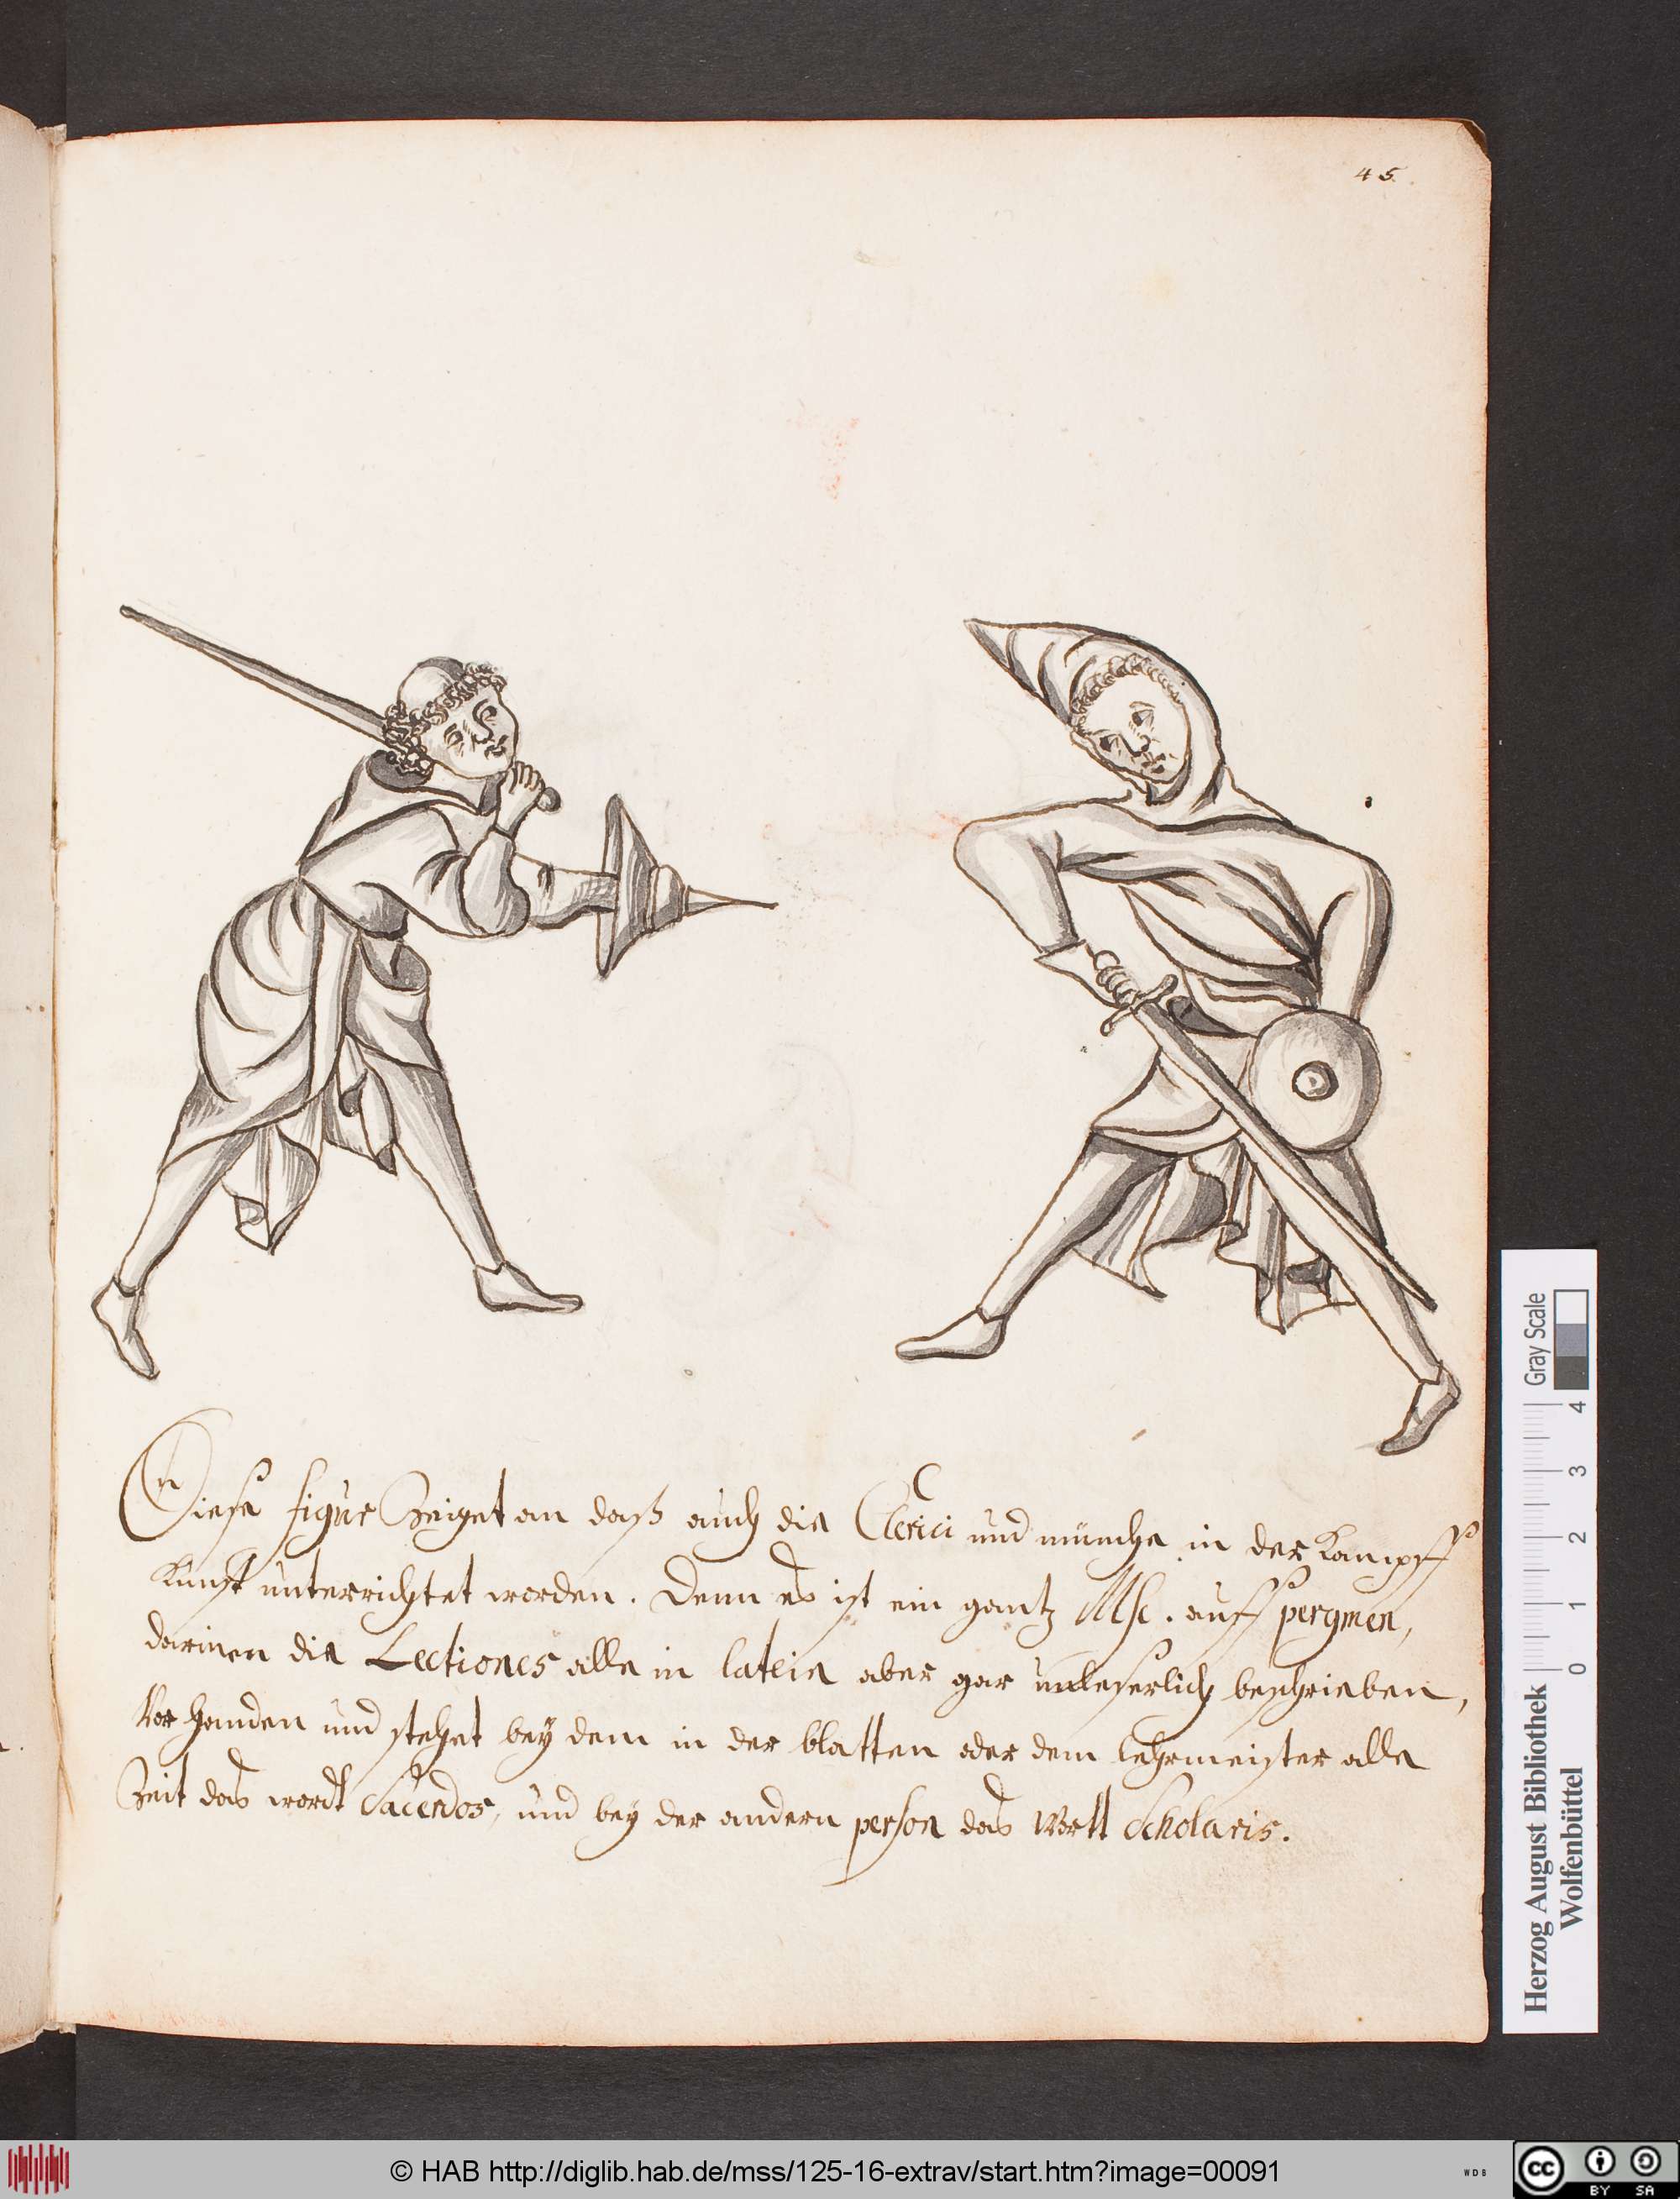 45.
Diese figur Zeiget an daß auch die Clerici und münche in der Kampff
Kunst unterrichtet worden. Denn es ist ein gantz Msc. auff pergmen,
darinen die Lectiones alle in latein aber gar unleserlich beschrieben,
Vorhanden und stehet bey dem in der blatten oder dem lehrmeister alle
Zeit das wordt Sacerdos, und bey der andern person das Wortt Scholaris.
Herzog August Bibliothek
Wolfenbüttel
0 1 2 3 4
Gray Scale
© HAB http://diglib.hab.de/mss/125-16-extrav/start.htm?image=00091
WDB
cc BY SA